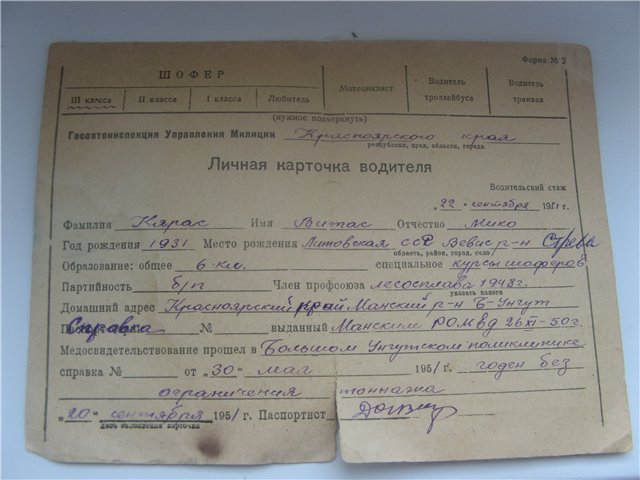 Форма № 2
ШОФЕР
III класса II класса I класса Любитель Мотоциклист Водитель троллейбуса Водитель трамвая
(нужное подчеркнуть)
Госавтоинспекция Управления Милиции Красноярского края
республики, края, области, города
Личная карточка водителя
Водительский стаж
"22" сентября 1951 г.
Фамилия Кярас Имя Витас Отчество Мико
Год рождения 1931 Место рождения Литовская ССР Вевис р-н Стрева
область, район, город, село
Образование: общее 6 кл. специальное курсы шоферов
Партийность б/п Член профсоюза лесосплава 1948 г.
указать какого
Домашний адрес Красноярский край Манский р-н Б-Унгут
Справка № выданный Манским РОМВД 26/XI-50 г.
Медосвидетельствование прошел в Большом Унгутском поликлинике
справка № от "30" мая 1951 г. годен без
ограничения тоннажа
"20" сентября 1951 г. Паспортист
дата заполнения карточки